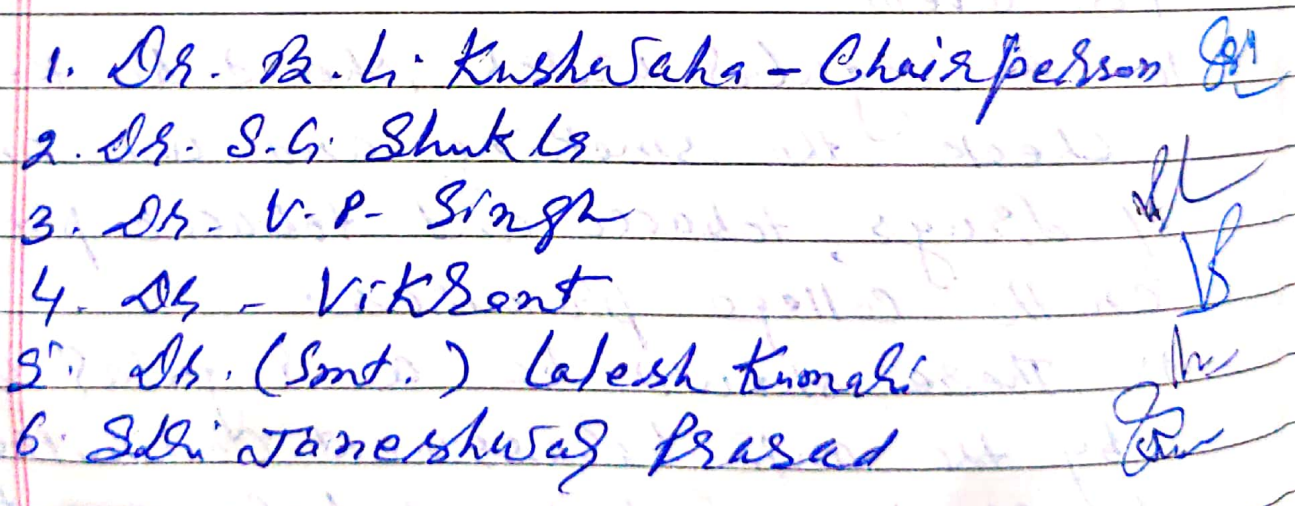 1. Dr. B. L. Kushwaha - Chairperson
2. Dr. S.G. Shukla
3. Dr. V. P. Singh
4. Dr - Vikrant
5. Dr. (Smt.) Lalesh Kumari
6. Sri Janeshwar Prasad